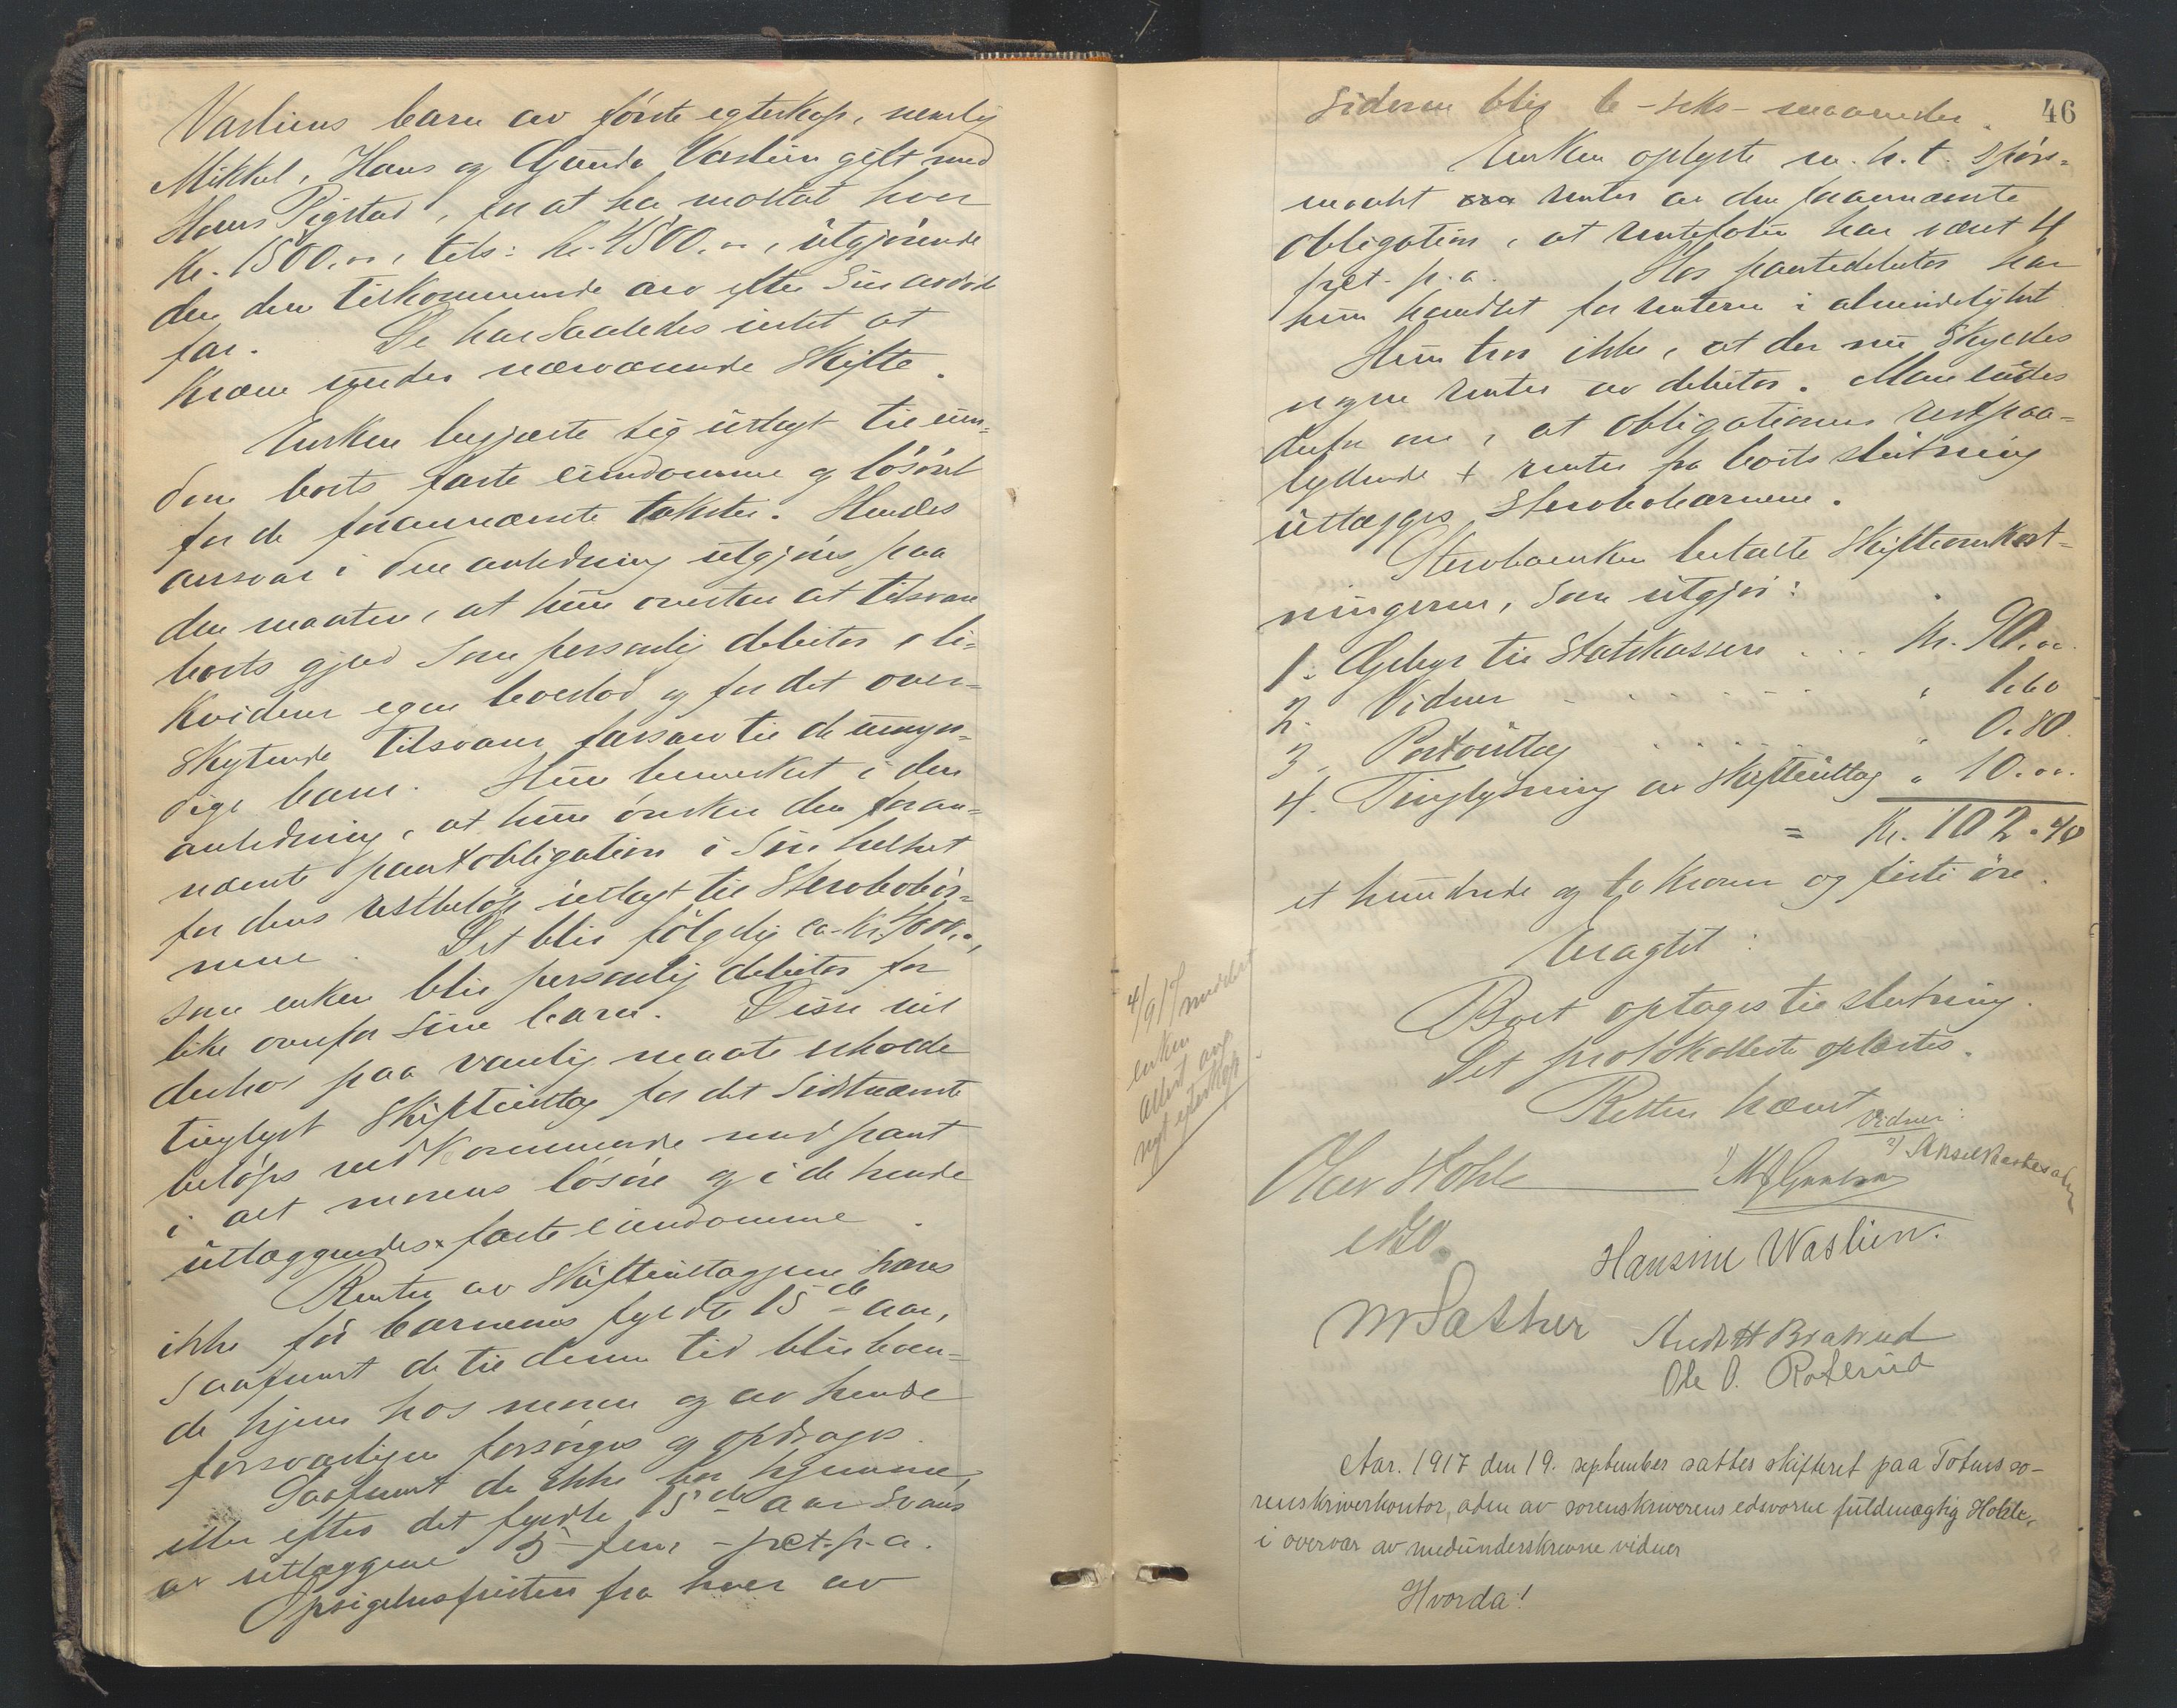 Vasliens barn av første egteskap, nemlig
Mikkel, Hans og Gunda Vaslien gift med
Hans Sigstad, for at ha mottat hver
kr. 1500.oo, tils: kr. 4500.oo, utgjørende
den dem tilkommende arv efter sin avdøde
far. De har saaledes intet at
kræve under nærværende skifte.
Enken begjærte sig utlagt til eien-
dom boets faste eiendomme og løsøret
for de forannævnte takster. Hendes
ansvar i den anledning utgjøres paa
den maaten, at hun overtar at tilsvare
boets gjæld som personlig debitor, li-
kviderer egen boeslod og for det over-
skytende tilsvarer farsarv til de umyn-
dige barn. Hun bemerket i den
anledning, at hun ønsker den foran-
nævnte pantobligation i sin helhet
for dens restbeløp utlagt til sterbobør-
nene. Det blir følgelig ca. kr. 400.,
som enken blir personlig debitor for
like overfor sine barn. Disse vil
derhos paa vanlig maate erholde
tinglyst skifteutlæg for det sidstnævnte
beløps vedkommende med pant
i alt morens løsøre og i de hende
utlæggendes faste eiendomme.
Renter av skifteutlæggene svares
ikke før barnenes fyldte 15de aar,
saafremt de til denne tid blir hven-
de hjem hos moren og av hende
forsvarligen forsørges og opdrages.
Saafremt de ikke bor hjemme,
eller efter det fyldte 15de aar svares
av utlæggene 5 - fem - pct. p.a.
Opsigelsesfristen fra hver av
46
siderne blir 6 - seks - maaneder.
Enken oplyste m.h.t. spørs-
maalet om renter av den forannævnte
obligation, at rentefoten har været 4
pct. p.a. Hos pantedebitor har
hun handlet for renterne i almindelighet.
Hun tror ikke, at der nu skyldes
nogen renter av debitor. Man enedes
derfor om, at obligationens restpaa-
lydende + renter fra boets slutning
utlægges sterbobarnene.
Sterboenken betalte skifteomkost-
ningerne, som utgjør:
1. Gebyr til Statskassen . . . kr. 90.oo.
2. Vidner " 1.60
3. Portoutlæg . . . . " 0.80.
4. Tinglysning av skifteutlæg " 10.oo.
= kr. 102.40
et hundrede og to kroner og firti øre.
Eragtet:
Boet optages til slutning.
Det protokollerte oplæstes.
Retten hævet
Vidner:
Olav Hohle 1) 2) Aksel
4/9 17 meddelt
enken
attest ang.
nyt egteskap.
edsv.
Hansine Waslien.
M Sæther
Ole O. Roterud
Aar. 1917 den 19. september sattes skifteret paa Totens so-
renskriverkontor, adm av sorenskriverens edsvorne fuldmægtig Hohle,
i overvær av medunderskrevne vidner
Hvorda!